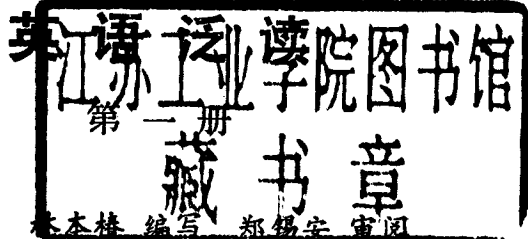 英语泛读
江苏工业学院图书馆
第一册
藏书章
林本椿 编写 郑锡安 审阅